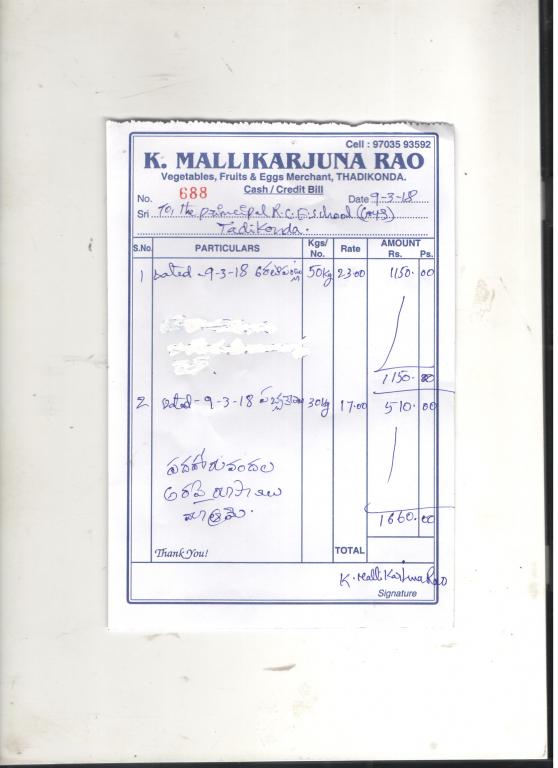 Cell : 97035 93592
K. MALLIKARJUNA RAO
Vegetables, Fruits & Eggs Merchant, THADIKONDA.
Cash / Credit Bill
No. 688 Date 9-3-18
Sri To, the principal R.C.E. school (Boys)
Tadikonda.
S.No. PARTICULARS Kgs/No. Rate AMOUNT Rs. Ps.
1 Dated - 9-3-18 50kg 23.00 1150. 00
1150. 00
2 Dated - 9-3-18 30kg 17.00 510. 00
పదహారువందల
అరవై రూపాయలు
మాత్రమే.
1660. 00
Thank You! TOTAL
K. Mallikarjuna Rao
Signature